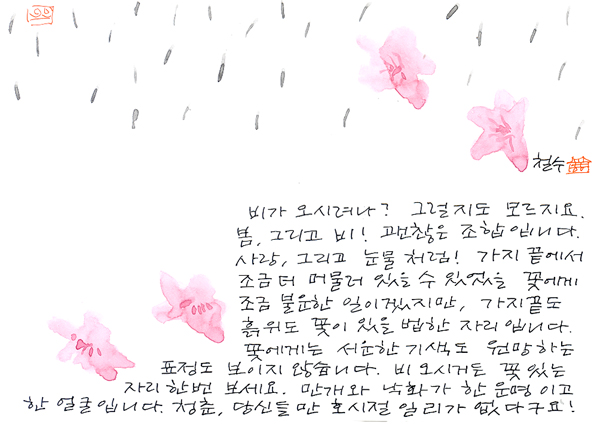 철수
비가 오시려나? 그럴지도 모르지요.
봄, 그리고 비! 괜찮은 조합입니다.
사랑, 그리고 눈물처럼! 가지 끝에서
조금 더 머물러 있을 수 있었을 꽃에게
조금 불운한 일이겠지만, 가지끝도
흙위도 꽃이 있을 법한 자리입니다.
꽃에게는 서운한 기색도 원망하는
표정도 보이지 않습니다. 비 오시거든 꽃 있는
자리 한번 보세요. 만개와 낙화가 한 운명이고
한 얼굴입니다. 청춘, 당신들만 호시절일리가 없다구요!